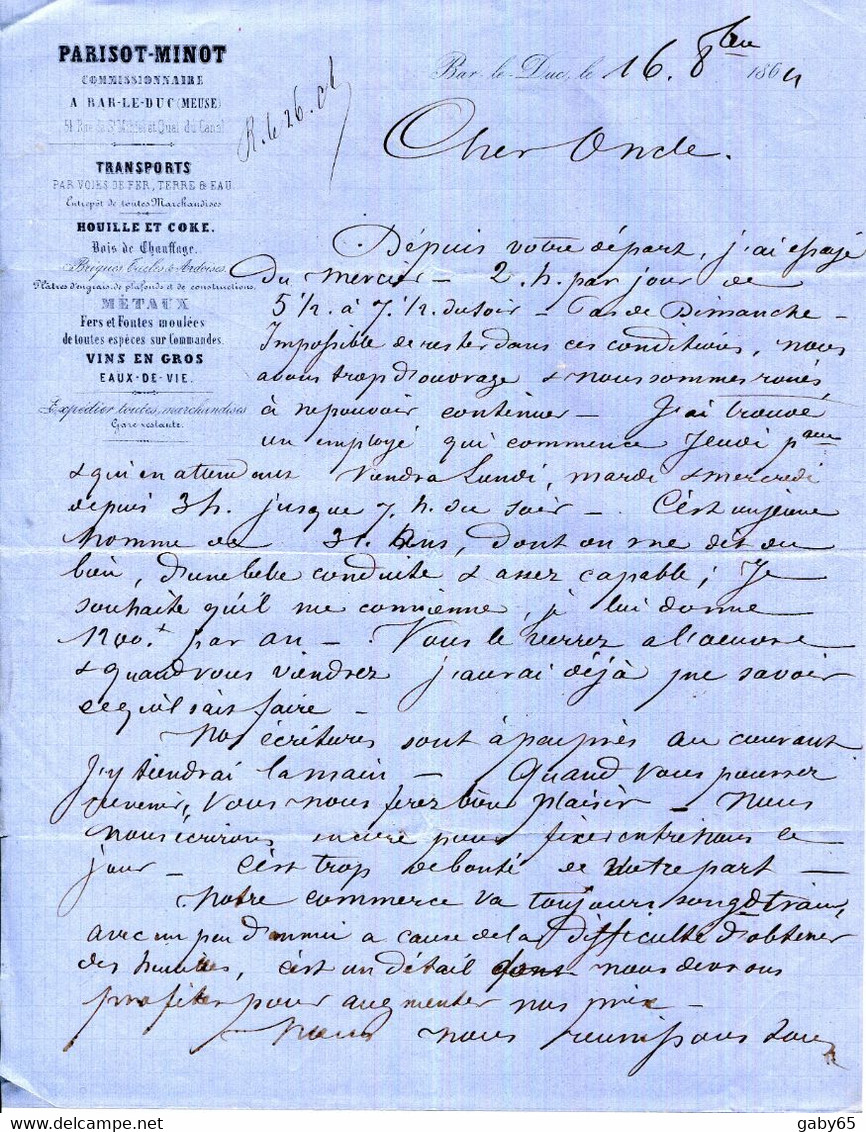 PARISOT-MINOT
COMMISSIONNAIRE
A BAR-LE-DUC (MEUSE)
51 Rue de St Mihiel et Quai du Canal
TRANSPORTS
PAR VOIES DE FER, TERRE & EAU
Entrepôt de toutes Marchandises
HOUILLE ET COKE.
Bois de Chauffage.
Briques, Tuiles & Ardoises
Plâtres d'engrais, de plafonds et de constructions.
MÉTAUX
Fers et Fontes moulées
de toutes espèces sur Commandes.
VINS EN GROS
EAUX-DE-VIE.
Expédier toutes marchandises
Gare restante.
R. le 26.
Bar-le-Duc, le 16. 8bre 1864
Cher Oncle.
Dépuis votre départ, j'ai essayé
du mercier - 2. h. par jour de
5 1/2. à 7. 1/2. du soir - Pas de Dimanche -
Impossible de rester dans ces conditions, nous
avons trop d'ouvrage & nous sommes
à ne pouvoir continuer - J'ai trouvé
un employé qui commence Jeudi
& qui en attendant viendra Lundi, mardi & mercredi
depuis 3 h. jusque 7. h. du soir - C'est un jeune
homme de 31. Ans, dont on me dit du
bien, d'une belle conduite & assez capable ; Je
souhaite qu'il me convienne, je lui donne
1200.f par an - Vous le verrez a l'oeuvre
& quand vous viendrez j'aurai déjà pu savoir
ce qu'il sait faire -
Nos écritures sont à peu près au courant
J'y tiendrai la main - Quand vous pourrez
revenir, vous nous ferez bien plaisir - Nous
nous écrirons encore pour fixer entre nous ce
jour - C'est trop de bonté de votre part -
Notre commerce va toujours son gd train,
avec un peu d'ennui a cause de la difficulté d'obtenir
des houilles, c'est un détail dont nous devrons
profiter pour augmenter nos prix -
Nous nous reunissons tous
delcampe.net
gaby65